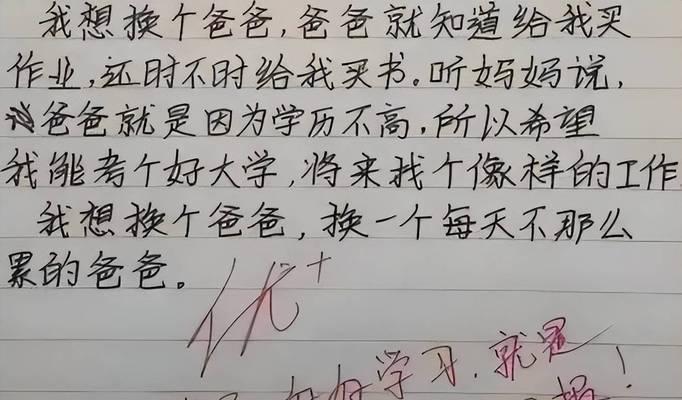 我想换个爸爸,爸爸就知道给我买
作业,还时不时给我买书。听妈妈说,
爸爸就是因为学历不高,所以希望
我能考个好大学,将来找个像样的工作
我想换个爸爸,换一个每天不那么
累的爸爸。
优+
好好学习,就是
!